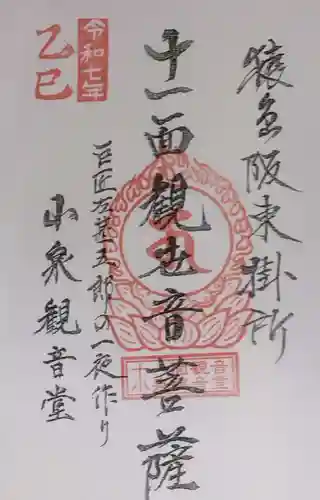 猿島阪東掛所
十一面観世音菩薩
巨匠左甚五郎の一夜作り
小泉観音堂
令和七年
乙巳